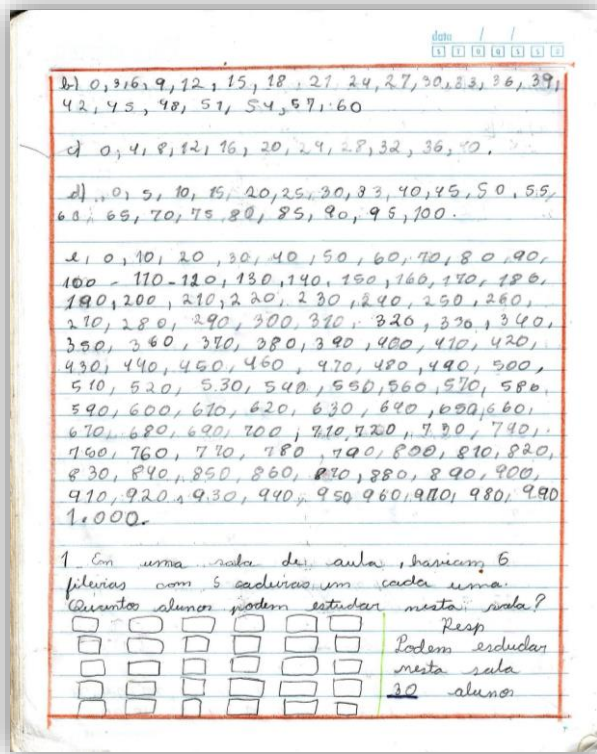 data / /
S T Q Q S S D
b) 0, 3, 6, 9, 12, 15, 18, 21 24, 27, 30, 33, 36, 39,
42, 45, 48, 51, 54, 57, 60
c) 0, 4, 8, 12, 16, 20, 24, 28, 32, 36, 40.
d) 0, 5, 10, 15, 20, 25, 30, 33, 40, 45, 50, 55,
60, 65, 70, 75 80, 85, 90, 95, 100.
e, 0, 10, 20, 30, 40, 50, 60, 70, 80, 90,
100 - 110 - 120, 130, 140, 150, 160, 170, 180,
190, 200, 210, 220, 230, 240, 250, 260,
270, 280, 290, 300, 310, 320, 330, 340,
350, 360, 370, 380, 390, 400, 410, 420,
430, 440, 450, 460, 470, 480, 490, 500,
510, 520, 530, 540, 550, 560, 570, 580,
590, 600, 610, 620, 630, 640, 650, 660,
670, 680, 690, 700, 710, 720, 730, 740,
750, 760, 770, 780, 790, 800, 810, 820,
830, 840, 850, 860, 870, 880, 890, 900,
910, 920, 930, 940, 950 960, 970, 980, 990
1.000.
1 Em uma sala de aula, haviam 6
fileiras com 5 cadeiras um cada uma.
Quantos alunos podem estudar nesta sala?
Resp
Podem esdudar
nesta sala
30 alunos